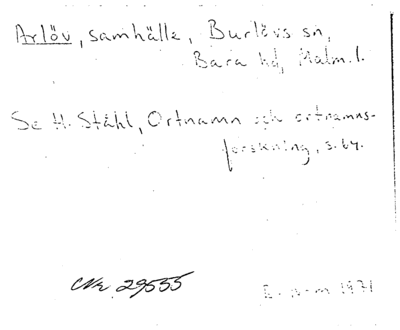 Arlöv, samhälle, Burlövs sn,
Bara hd, Malm. l.
Se H. Ståhl, Ortnamn och ortnamns-
forskning, s. 64.
Nr 29555
1971